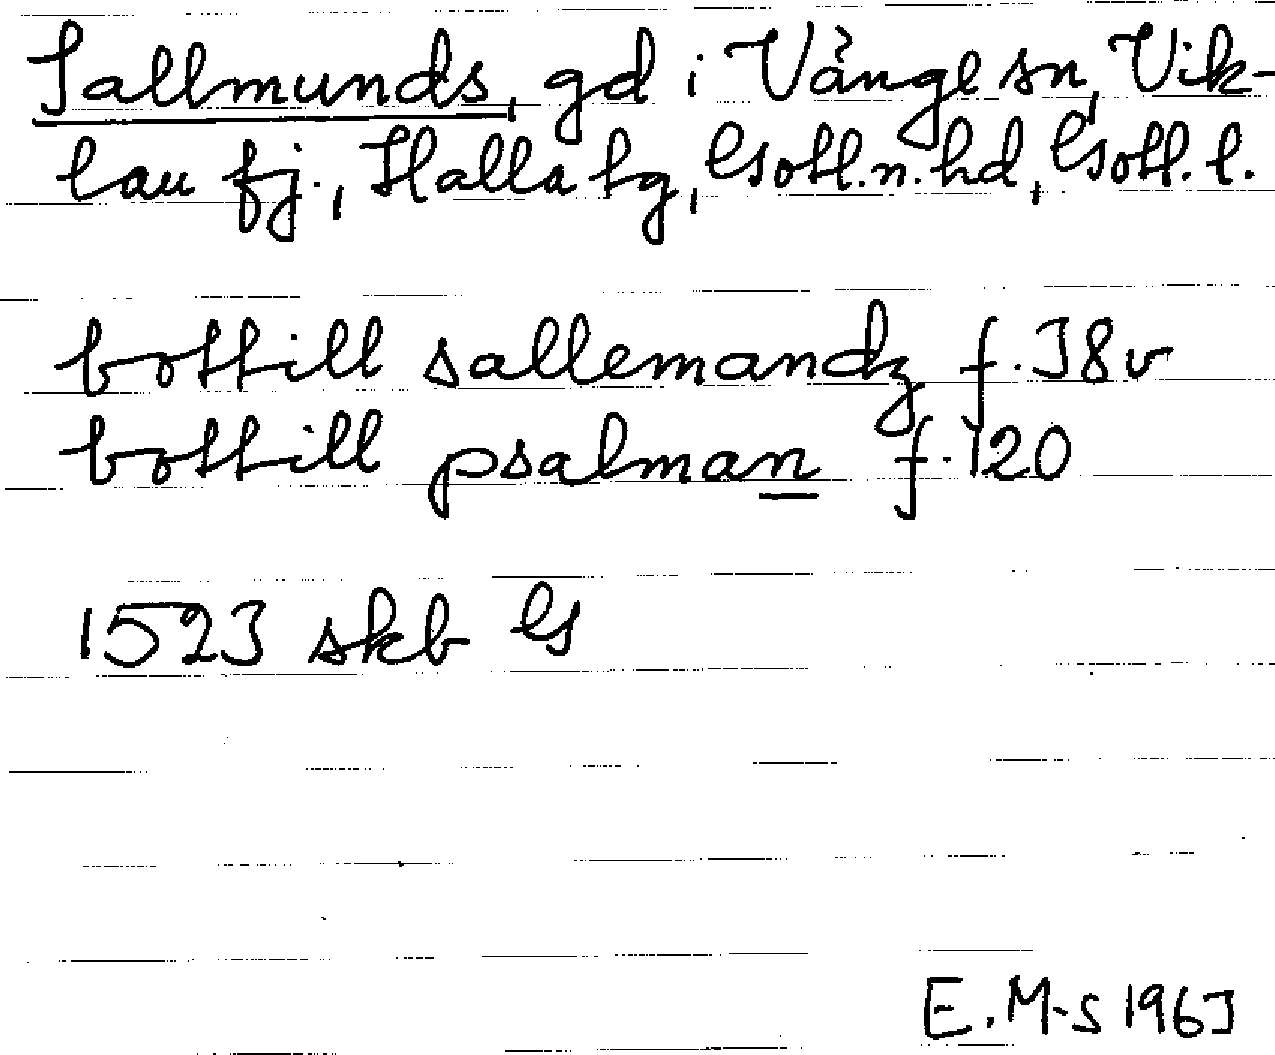 Sallmunds, gd i Vänge sn, Vik-
lau fj., Halla tg, Gotl. n. hd, Gotl. l.
bottill sallemandz f. 38v
bottill psalman f. 120
1523 skb G
E. M-s 1963